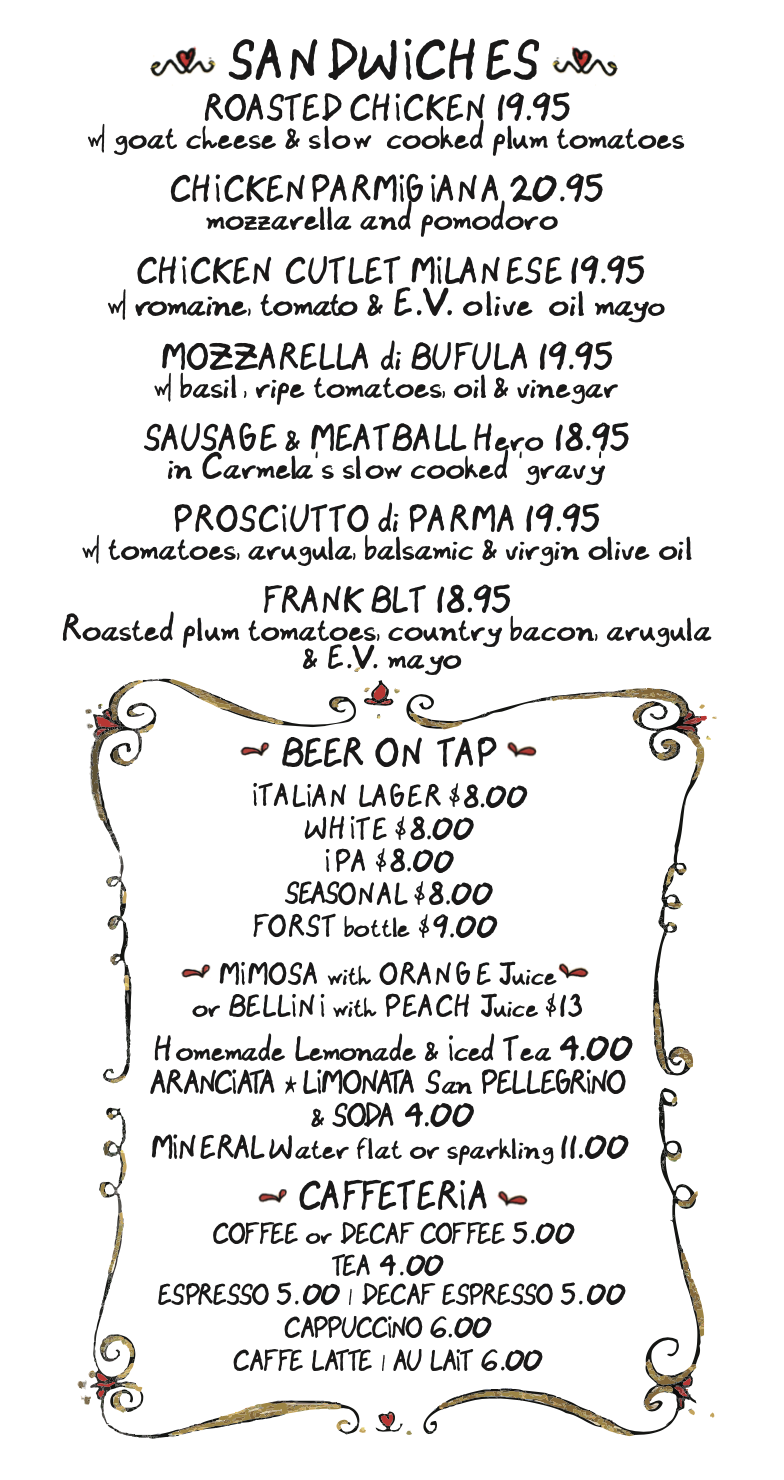 SANDWiCHES
ROASTED CHiCKEN 19.95
w/ goat cheese & slow cooked plum tomatoes
CHiCKEN PARMiGiANA 20.95
mozzarella and pomodoro
CHiCKEN CUTLET MiLANESE 19.95
w/ romaine, tomato & E.V. olive oil mayo
MOZZARELLA di BUFULA 19.95
w/ basil, ripe tomatoes, oil & vinegar
SAUSAGE & MEATBALL Hero 18.95
in Carmela's slow cooked 'gravy'
PROSCiUTTO di PARMA 19.95
w/ tomatoes, arugula, balsamic & virgin olive oil
FRANK BLT 18.95
Roasted plum tomatoes, country bacon, arugula
& E.V. mayo
BEER ON TAP
iTALiAN LAGER $8.00
WHiTE $8.00
iPA $8.00
SEASONAL $8.00
FORST bottle $9.00
MiMOSA with ORANGE Juice
or BELLiNi with PEACH Juice $13
Homemade Lemonade & iced Tea 4.00
ARANCiATA ★ LiMONATA San PELLEGRiNO
& SODA 4.00
MiNERAL Water flat or sparkling 11.00
CAFFETERiA
COFFEE or DECAF COFFEE 5.00
TEA 4.00
ESPRESSO 5.00 | DECAF ESPRESSO 5.00
CAPPUCCiNO 6.00
CAFFE LATTE | AU LAiT 6.00